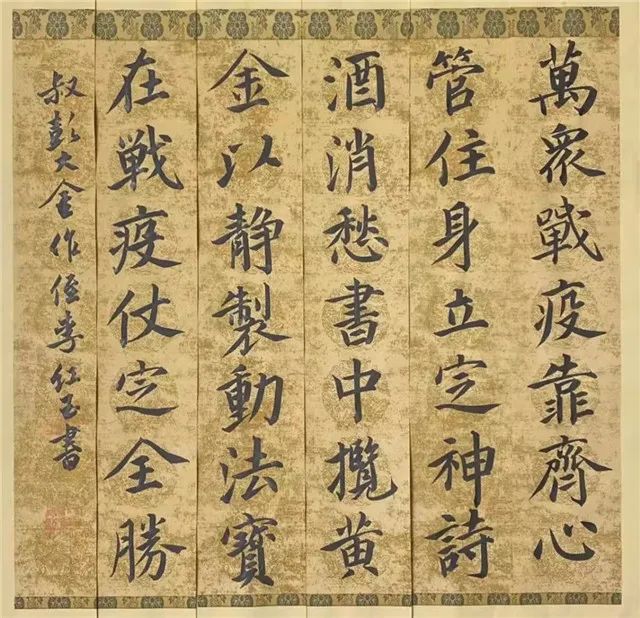 萬衆戰疫靠齊心
管住身立定神詩
酒消愁書中攬黄
金以静製動法寶
在戦疫仗定全勝
叔彭大金作侄李红玉書